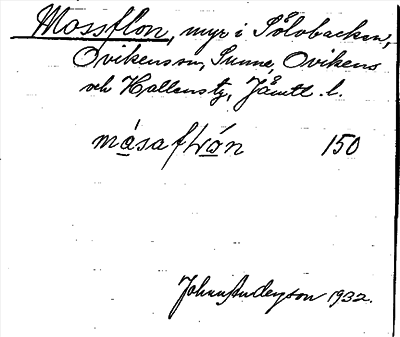 Mossflon, myr i Sölvbacken,
Ovikensson, Sunne, Ovikens
och Hallens tg, Jämtl. l.
måsaflɷ́n 150
Johan Anderson 1932.